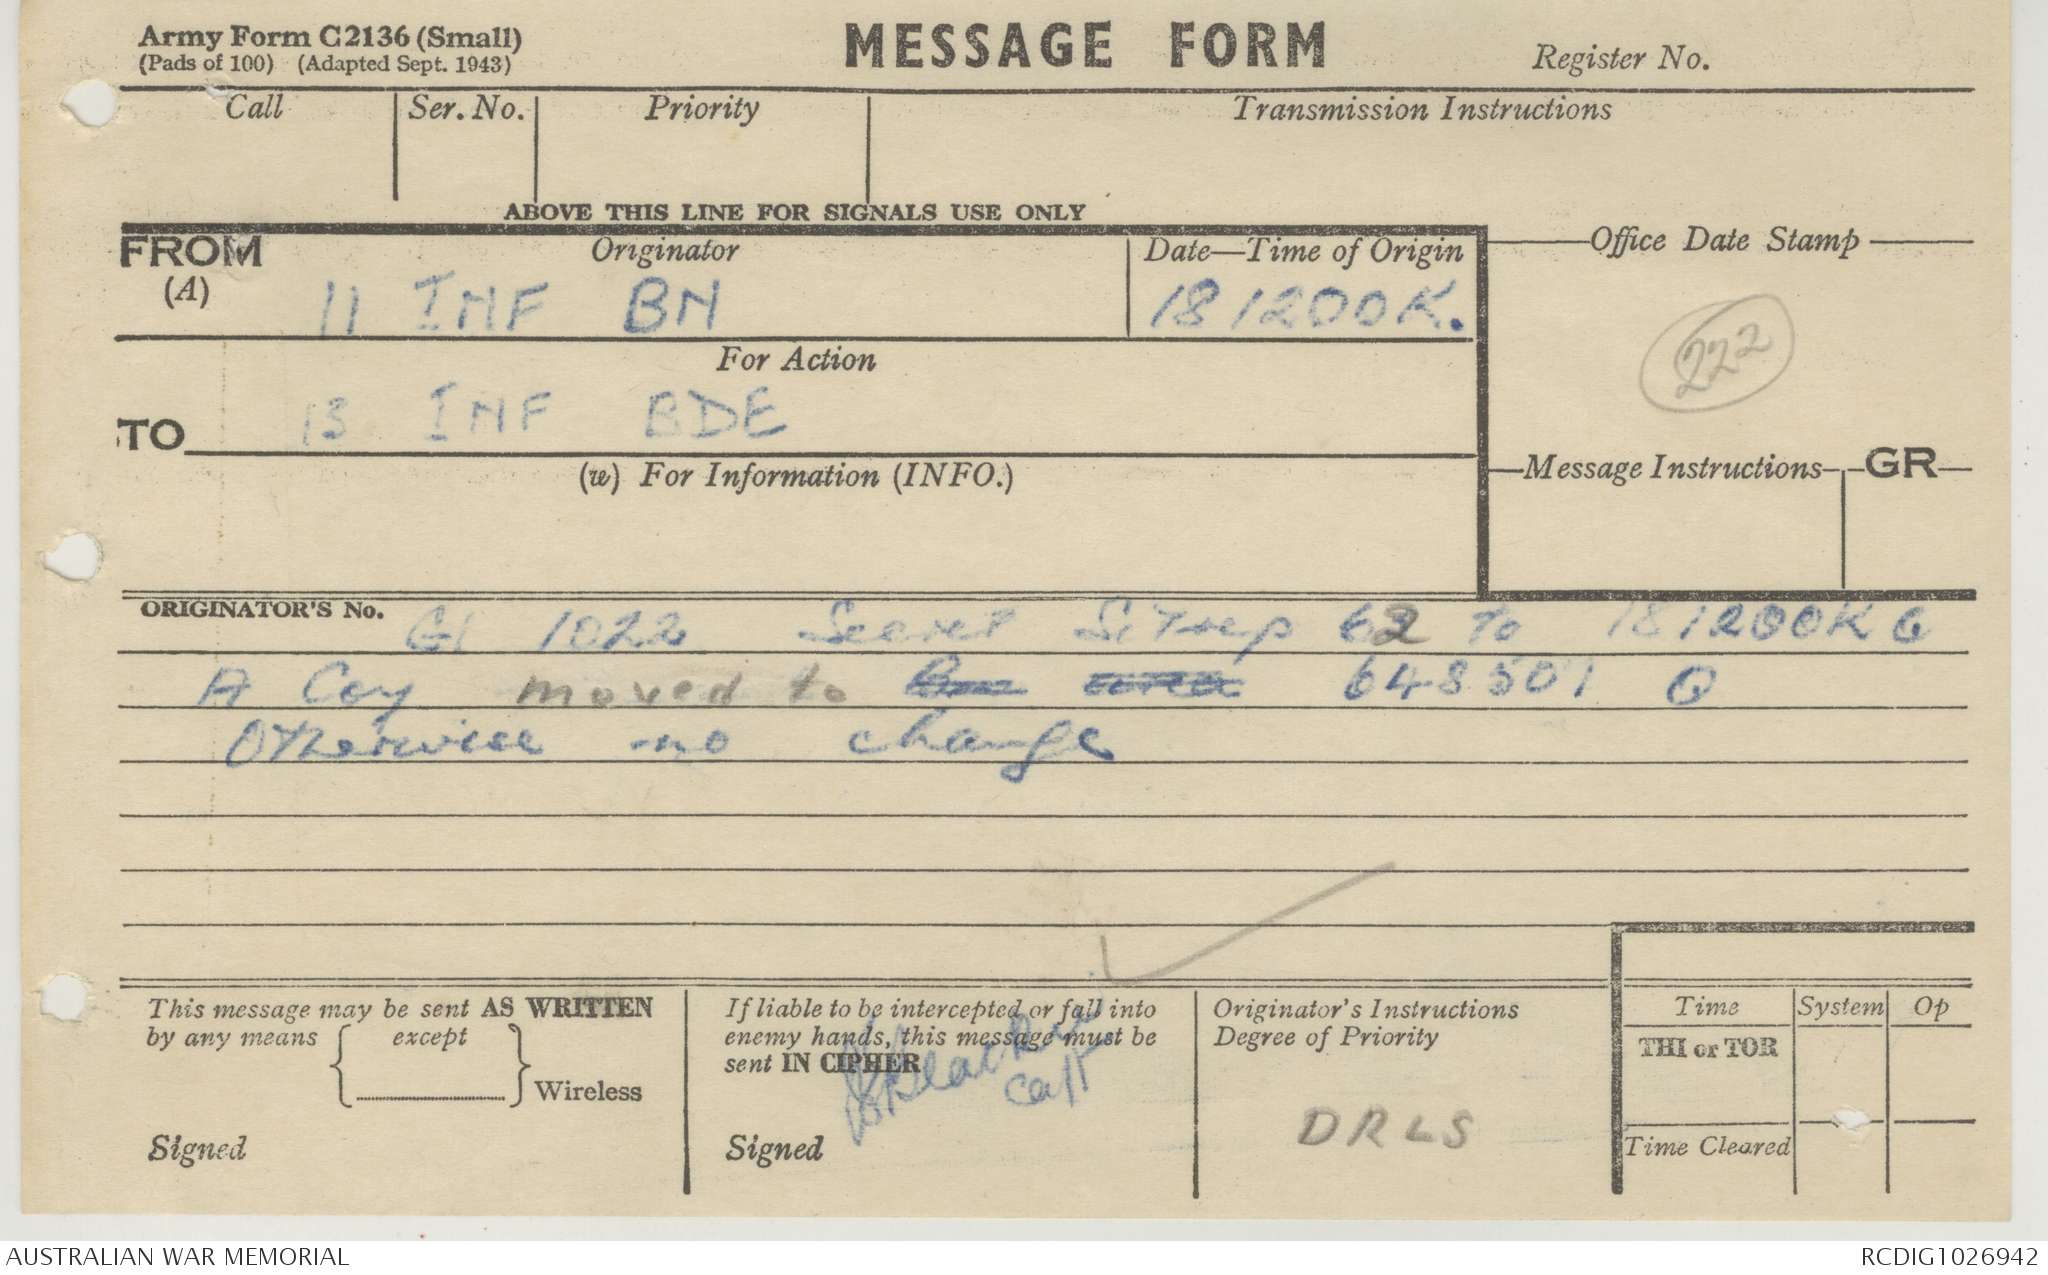 Army Form C2136 (Small)
(Pads of 100) (Adapted Sept. 1943)
MESSAGE FORM
Register No.
Call
Ser. No.
Priority
Transmission Instructions
ABOVE THIS LINE FOR SIGNALS USE ONLY
FROM
(A)
Originator
11 INF BN
Date—Time of Origin
181200K.
Office Date Stamp
222
For Action
TO
13 INF BDE
(w) For Information (INFO.)
Message Instructions
GR
ORIGINATOR'S No.
G1 1022 Secret Sitrep 62 to 181200K O
A Coy moved to area 648501 O
Otherwise no change
This message may be sent AS WRITTEN
by any means except
Wireless
Signed
If liable to be intercepted or fall into
enemy hands, this message must be
sent IN CIPHER
Capt
Signed
Originator's Instructions
Degree of Priority
DRLS
Time
System
Op
THI or TOR
Time Cleared
AUSTRALIAN WAR MEMORIAL
RCDIG1026942